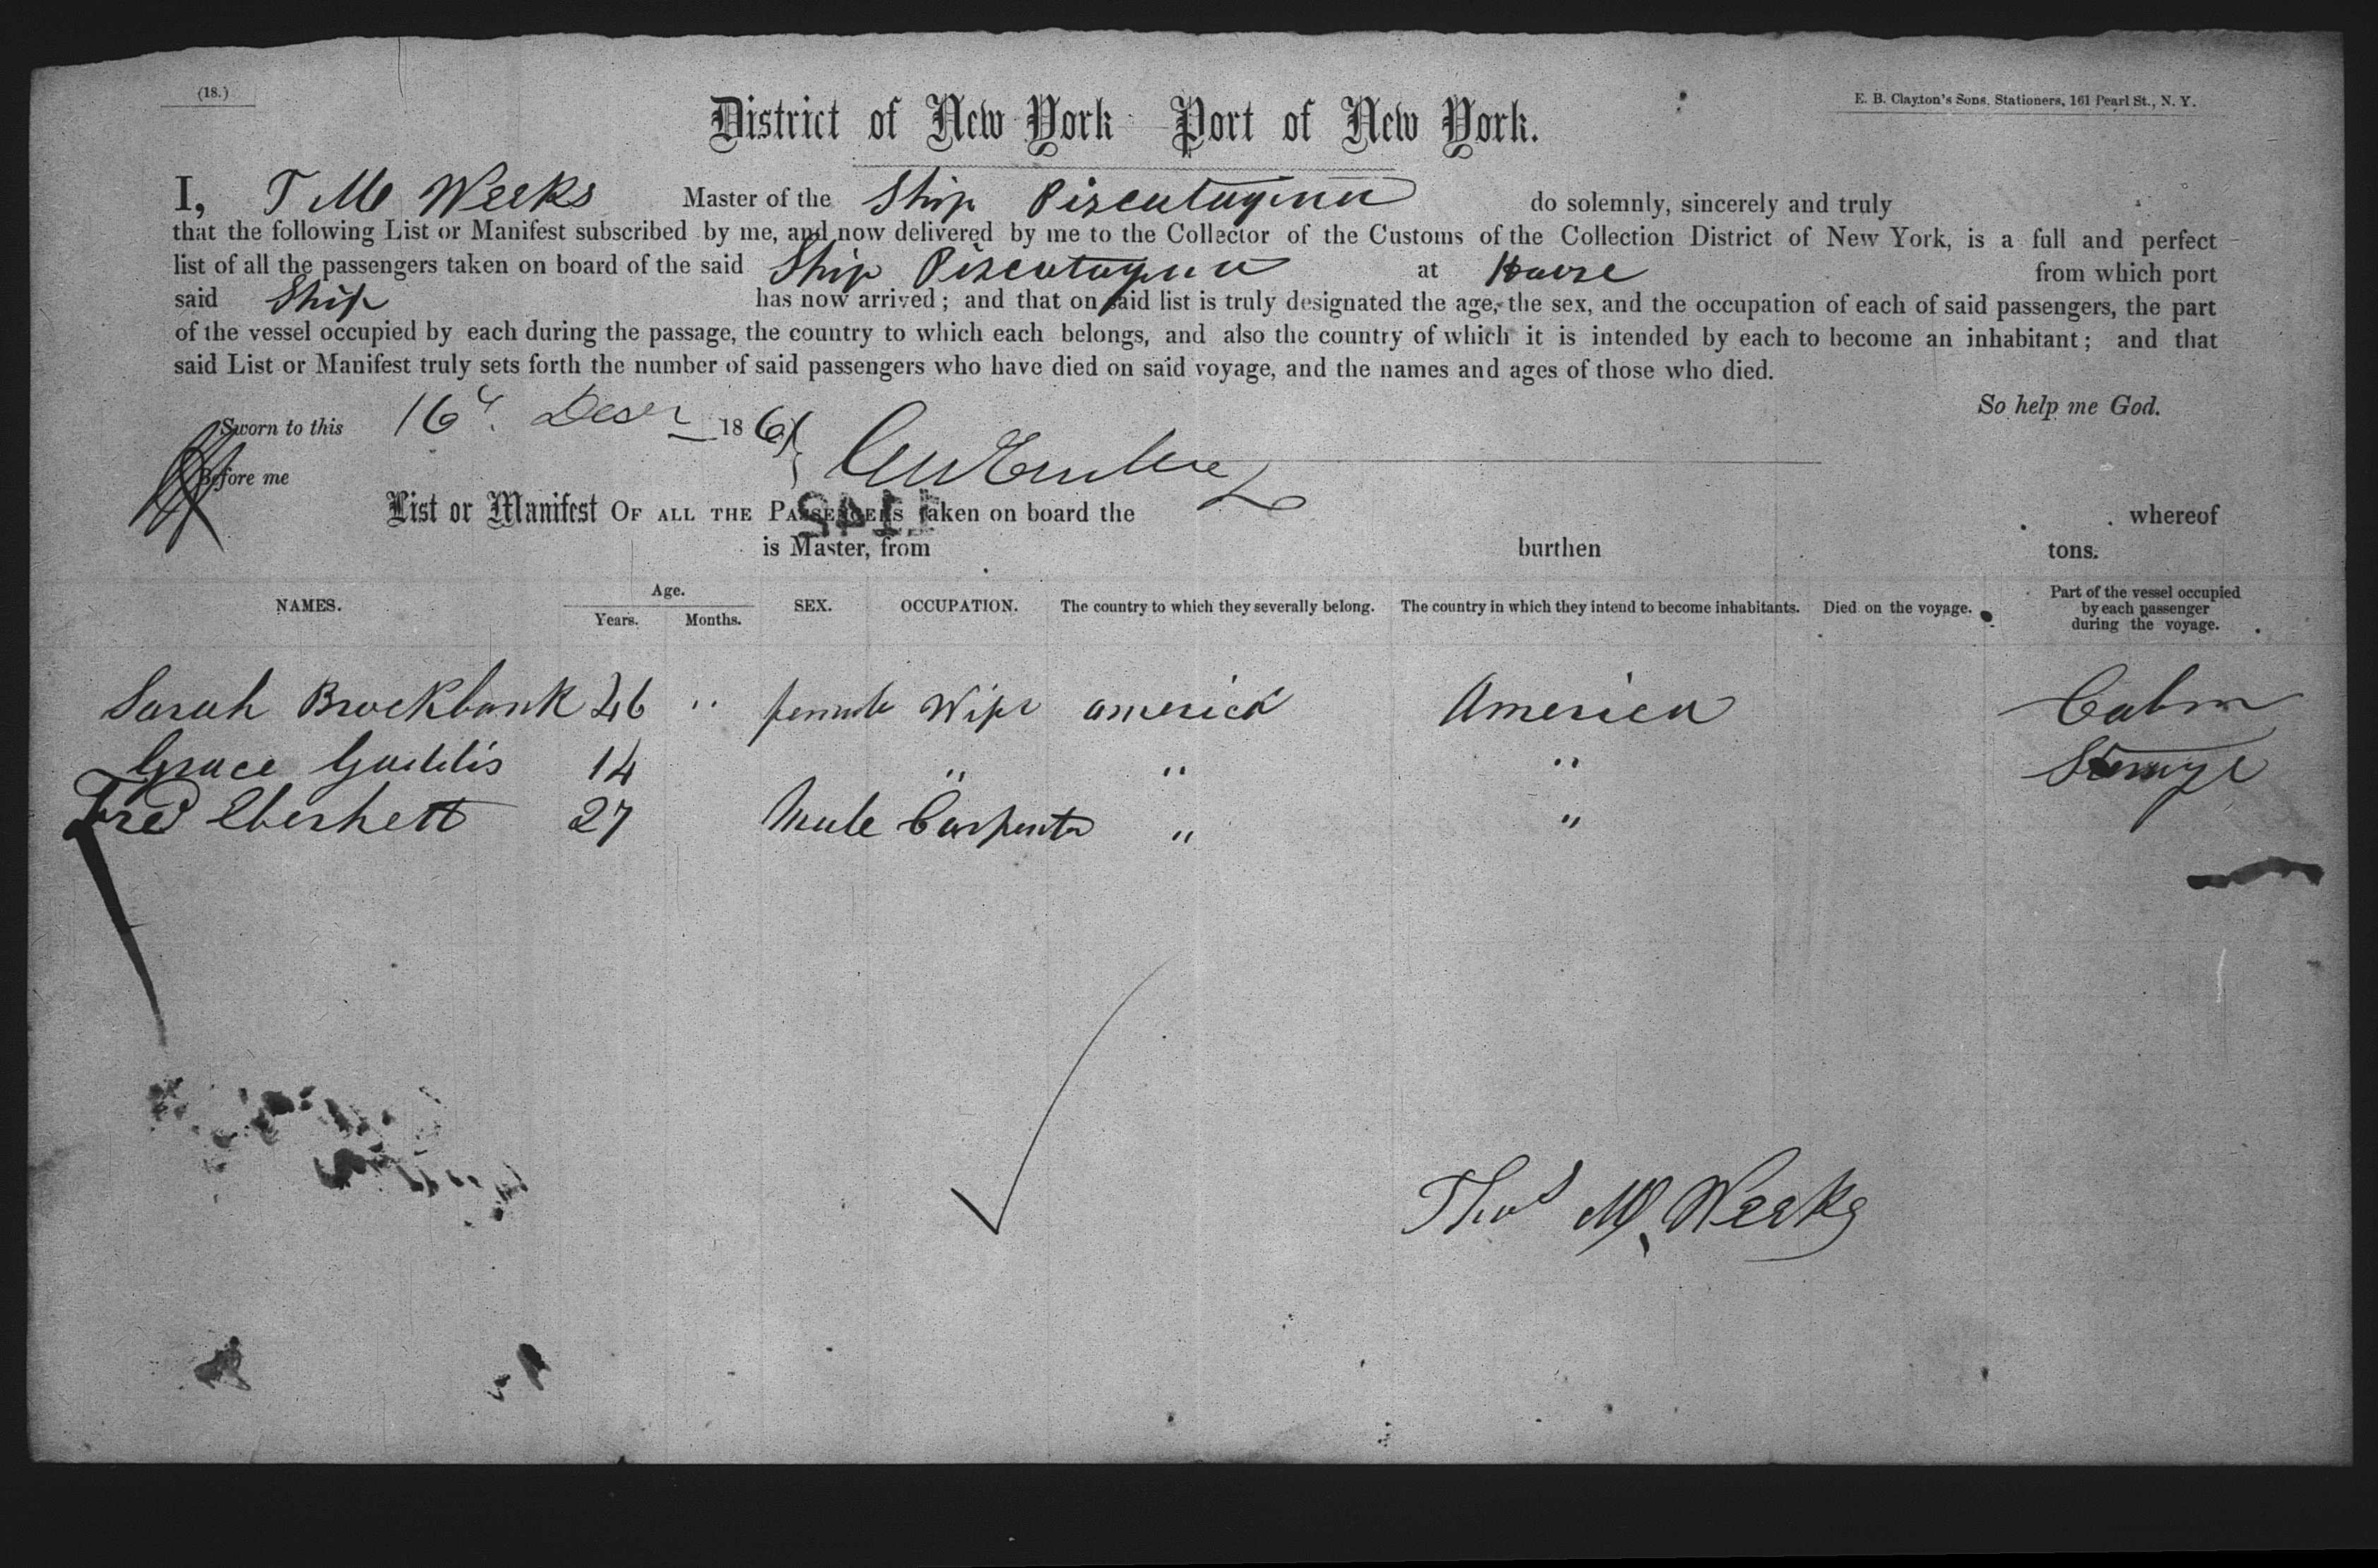 (18.)
E. B. Clayton's Sons, Stationers, 161 Pearl St., N. Y.
District of New York Port of New York.
I, T M Weeks Master of the Ship Piscataqua do solemnly, sincerely and truly
that the following List or Manifest subscribed by me, and now delivered by me to the Collector of the Customs of the Collection District of New York, is a full and perfect
list of all the passengers taken on board of the said Ship Piscataqua at Havre from which port
said Ship has now arrived; and that on said list is truly designated the age, the sex, and the occupation of each of said passengers, the part
of the vessel occupied by each during the passage, the country to which each belongs, and also the country of which it is intended by each to become an inhabitant; and that
said List or Manifest truly sets forth the number of said passengers who have died on said voyage, and the names and ages of those who died.
So help me God.
Sworn to this 16 Decr 186
Before me
List or Manifest OF ALL THE PASSENGERS taken on board the whereof
is Master, from burthen tons.
NAMES. Age. Years. Months. SEX. OCCUPATION. The country to which they severally belong. The country in which they intend to become inhabitants. Died on the voyage. Part of the vessel occupied by each passenger during the voyage.
Sarah Brockbank 46 " female Wife america America Cabin
Grace Gaddis 14 " " " Sterrage
Fred Eberhett 27 Male Carpenter " "
Thos M. Weeks